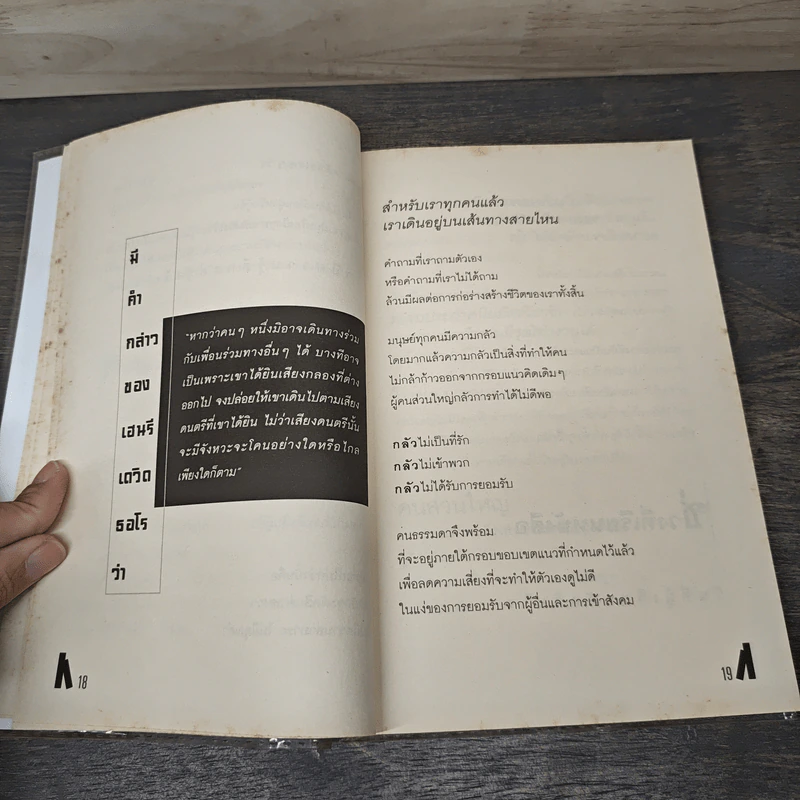 มี
คำ
กล่าว
ของ
เฮนรี
เดวิด
ธอโร
ว่า
"หากว่าคนๆ หนึ่งมิอาจเดินทางร่วม
กับเพื่อนร่วมทางอื่นๆ ได้ บางทีอาจ
เป็นเพราะเขาได้ยินเสียงกลองที่ต่าง
ออกไป จงปล่อยให้เขาเดินไปตามเสียง
ดนตรีที่เขาได้ยิน ไม่ว่าเสียงดนตรีนั้น
จะมีจังหวะจะโคนอย่างใดหรือไกล
เพียงใดก็ตาม"
18
สำหรับเราทุกคนแล้ว
เราเดินอยู่บนเส้นทางสายไหน
คำถามที่เราถามตัวเอง
หรือคำถามที่เราไม่ได้ถาม
ล้วนมีผลต่อการก่อร่างสร้างชีวิตของเราทั้งสิ้น
มนุษย์ทุกคนมีความกลัว
โดยมากแล้วความกลัวเป็นสิ่งที่ทำให้คน
ไม่กล้าก้าวออกจากกรอบแนวคิดเดิมๆ
ผู้คนส่วนใหญ่กลัวการทำได้ไม่ดีพอ
กลัวไม่เป็นที่รัก
กลัวไม่เข้าพวก
กลัวไม่ได้รับการยอมรับ
คนธรรมดาจึงพร้อม
ที่จะอยู่ภายใต้กรอบขอบเขตแนวที่กำหนดไว้แล้ว
เพื่อลดความเสี่ยงที่จะทำให้ตัวเองดูไม่ดี
ในแง่ของการยอมรับจากผู้อื่นและการเข้าสังคม
19